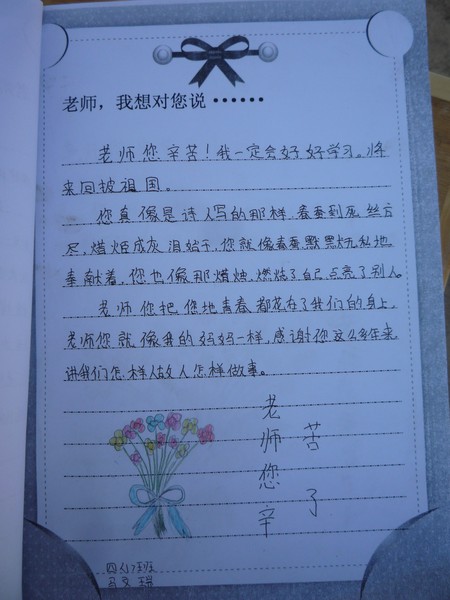 老师，我想对您说 ……
老师您辛苦！我一定会好好学习。将
来回披祖国。
您真像是诗人写的那样，春蚕到死丝方
尽，蜡炬成灰泪始干，您就像春蚕默默无私地
奉献着，您也像那蜡烛，燃烧了自己点亮了别人。
老师您把您地青春都花在了我们的身上，
老师您就像我的妈妈一样，感谢您这么多年来
讲我们怎样做人怎样做事。
老师您辛
苦了
四(1)班